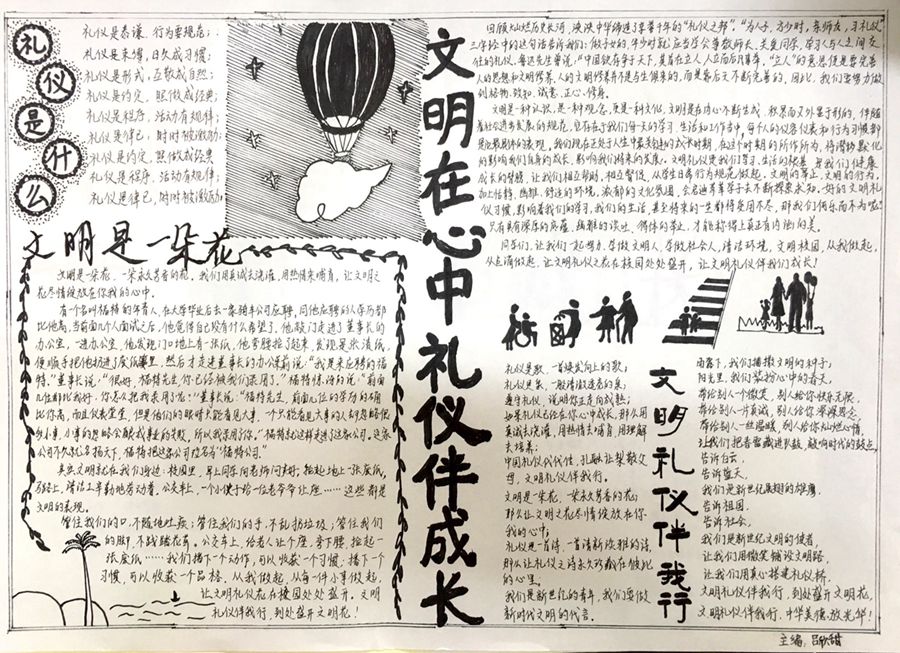 礼仪是什么
礼仪是恭谦，行为要规范；
礼仪是束缚，日久成习惯；
礼仪是形式，互敬成自然；
礼仪是约定，照做成经典；
礼仪是程序，活动有规律；
礼仪是律己，时时被激励；
礼仪是约定，照做成经典
礼仪是程序，活动有规律；
礼仪是律己，时时被激励。
文明是一朵花
文明是一朵花，一朵永久芳香的花，我们用真诚去浇灌，用热情来哺育，让文明之
花尽情绽放在你我的心中。
有一个名叫福特的年青人，在大学毕业后去一家骑车公司应聘，同他应聘的人学历都
比他高，当前面几个人面试之后，他觉得自己没有什么希望了，他敲门走进了董事长的
办公室，一进办公室，他发现门口地上有一张纸，他弯腰捡了起来，发现是张废纸，
便顺手把他扔进了废纸篓里，然后才走进董事长的办公桌前说：“我是来应聘的福
特。”董事长说：“很好，福特先生，你已经被我们录用了。”福特惊讶的说：“前面
几位都比我好，你怎么把我录用了呢？”董事长说：“福特先生，前面几位的学历的确
比你高，而且仪表堂堂，但是他们的眼睛只能看见大事，一个只能看见大事的人却忽略很
多小事，小事的忽略会酿成事业的失败，所以我录用了你。”福特就这样走进了这家公司。这家
公司不久就名扬天下，福特把这家公司改名为“福特公司。”
其实文明就在我们身边：校园里，早上同学向老师问好；捡起地上一张废纸，
马路上，清洁工辛勤地劳动着，公交车上，一个小伙子给一位老爷爷让座……这些都是
文明的表现。
管住我们的口，不随地吐痰；管住我们的手，不乱扔垃圾；管住我们
的脚，不践踏花草。公交车上，给老人让个座，弯下腰，捡起一
张废纸……我们播下一个动作，可以收获一个习惯；播下一个
习惯，可以收获一个品格，从我做起，从每一件小事做起，
让文明礼仪花在校园处处盛开。文明
礼仪伴我行，到处盛开文明花！
文明在心中 礼仪伴成长
回顾灿烂历史长河，泱泱中华铸造了享誉千年的“礼仪之邦”，“为人子，方少时，亲师友，习礼仪”
三字经中的这句话告诉我们：做子女的，年少时就应当学会尊敬师长、关爱同学，学习人与人之间交
往的礼仪。鲁迅先生曾说：“中国欲存争于天下，其首在立人，人立而后凡事举。“立人”的意思便是要完善
人的思想和文明修养，人的文明修养并不是与生俱来的，而是靠后天不断完善的，因此，我们要努力做
到格物、致知、诚意、正心、修身。
文明是一种认识，是一种观念，更是一种文化，文明是在内心不断生成、积累而又外显于形的，伴随
着社会进步发展的规范，它存在于我们每天的学习、生活和工作当中，每个人的仪容仪表和行为习惯都
是它最具体的表现。我们现在正处于人生中最关键的成长时期，在这个时期的所作所为，将潜移默化
的影响我们自身的成长，影响我们将来的发展，文明礼仪是我们学习、生活的根基，是我们健康
成长的臂膀，让我们相互帮助，相互督促，从学生日常行为规范做起，文明的举止，文明的行为，
加上恬静、幽雅、舒适的环境，浓郁的文化氛围，会启迪莘莘学子去不断探索求知，好的文明礼
仪习惯，影响着我们的学习，我们的生活，甚至将来的一生都将受用不尽，那我们何乐而不为呢？
只有具有深厚的底蕴，幽雅的谈吐，得体的举止，才能称得上真正有内涵的美。
同学们，让我们一起努力，学做文明人，学做社会人，清洁环境，文明校园，从我做起，
从点滴做起，让文明礼仪之花在校园处处盛开，让文明礼仪伴我们成长！
文明礼仪伴我行
礼仪是歌，一首焕发向上的歌；
礼仪是泉，一股清澈透香的泉；
遵守礼仪，说明你正走向成熟；
如果礼仪已经在你心中成长，那么用
真诚去浇灌，用热情去哺育，用理解
去培养；
中国礼仪代代传，孔融让梨敬父
母，文明礼仪伴我行。
文明是一朵花，一朵永久芳香的花；
那么让文明之花尽情绽放在你
我的心中；
礼仪是一首诗，一首清新淡雅的诗，
那么让礼仪之诗永久珍藏在彼此
的心里，
我们是新世纪的青年，我们要做
新时代文明的代言。
雨露下，我们播撒文明的种子；
阳光里，我们装扮心中的春天，
带给别人一个微笑，别人给你快乐无限，
带给别人一片真诚，别人给你深深思念，
带给别人一丝温暖，别人给你灿烂心情，
让我们把春雷藏进队鼓，敲响时代的鼓点，
告诉白云，
告诉蓝天，
我们是新世纪展翅的雄鹰，
告诉祖国，
告诉社会，
我们是新世纪文明的使者，
让我们用微笑铺设文明路，
让我们用真心搭建礼仪桥，
文明礼仪伴我行，到处盛开文明花，
文明礼仪伴我行，中华美德放光华！
主编：吕欣甜